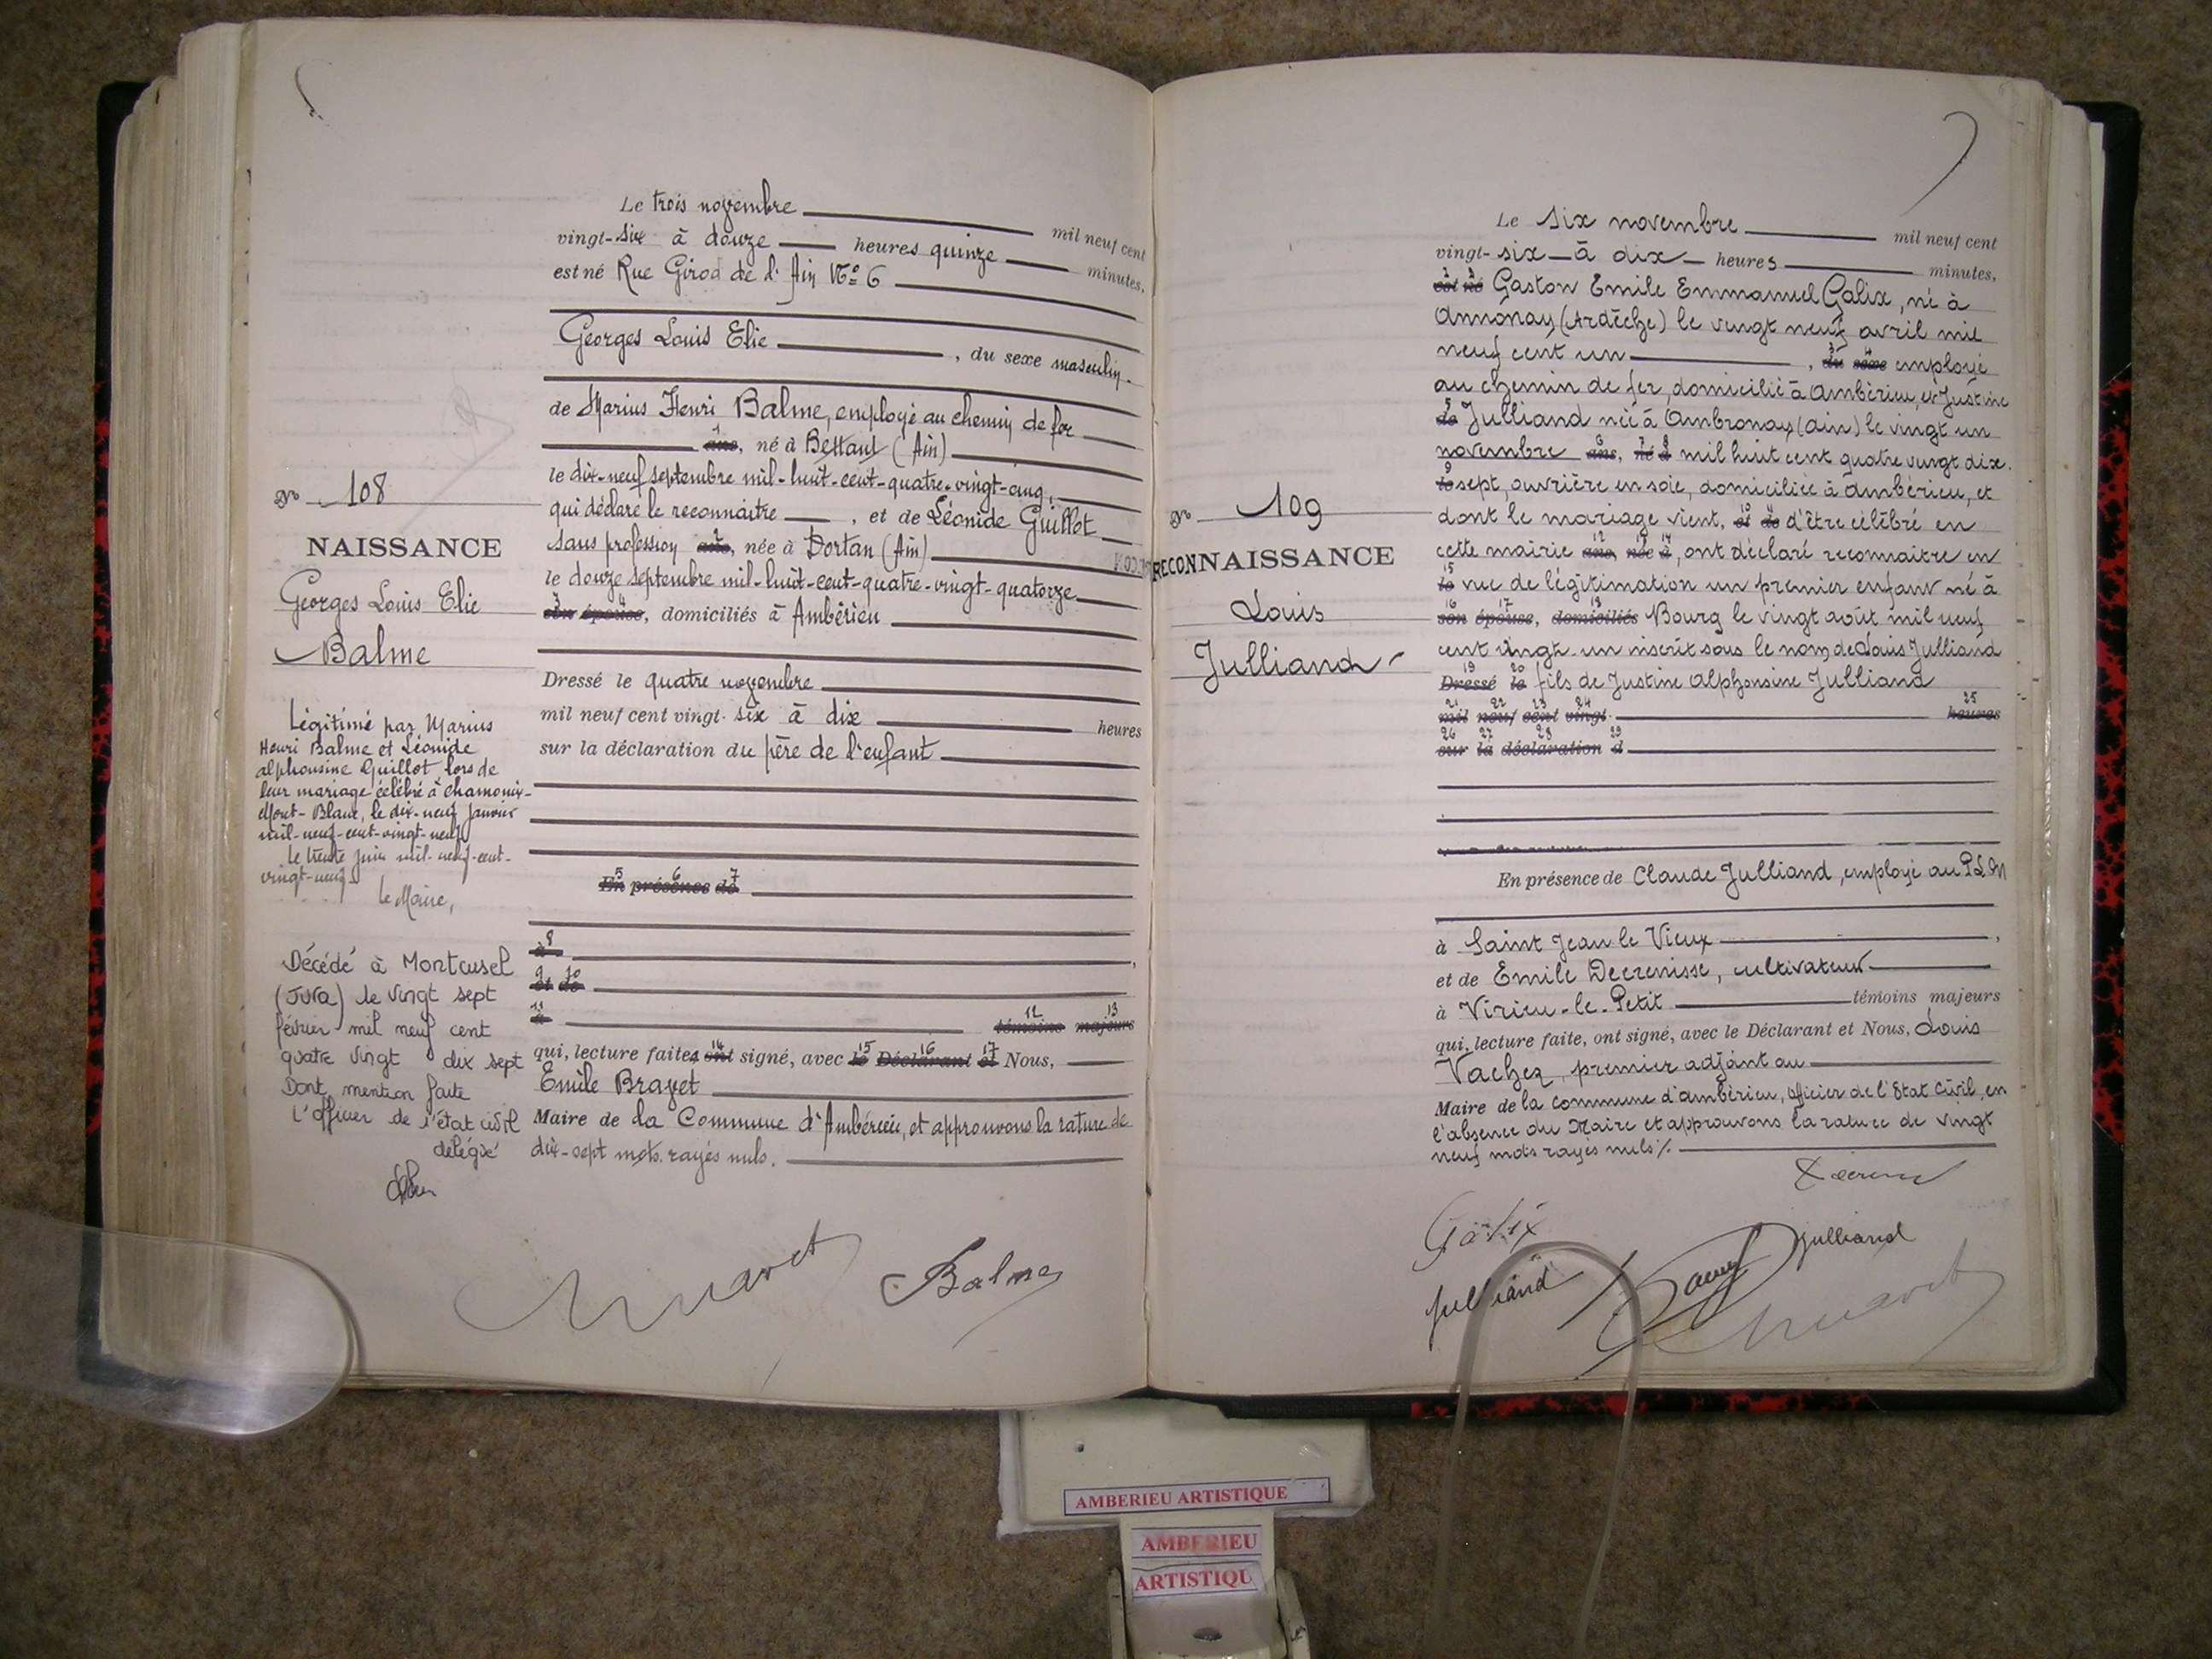 Le trois novembre mil neuf cent
vingt-six à douze heures quinze minutes,
est né Rue Girod de l'Ain N° 6
Georges Louis Elie, du sexe masculin.
de Marius Henri Balme, employé au chemin de fer
ans, né à Bettant (Ain)
le dix-neuf septembre mil-huit-cent-quatre-vingt-cinq,
qui déclare le reconnaître, et de Léonide Guillot
sans profession ans, née à Dortan (Ain)
le douze septembre mil-huit-cent-quatre-vingt-quatorze
son épouse, domiciliés à Ambérieu
Dressé le quatre novembre
mil neuf cent vingt-six à dix heures
sur la déclaration du père de l'enfant
En présence de
à
et de
à témoins majeurs
qui, lecture faite, ont signé, avec le Déclarant et Nous,
Emile Bravet
Maire de la Commune d'Ambérieu, et approuvons la rature de
dix-sept mots rayés nuls.
Balme
N° 108
NAISSANCE
Georges Louis Elie
Balme
Légitimé par Marius
Henri Balme et Léonide
alphonsine Guillot lors de
leur mariage célébré à Chamonix-
Mont-Blanc, le dix-neuf Janvier
mil-neuf-cent-vingt-neuf
Le trente juin mil-neuf-cent-
vingt-neuf
Le Maire,
Décédé à Montcusel
(Jura) le vingt sept
février mil neuf cent
quatre vingt dix sept
Dont mention faite
L'officier de l'état civil
délégué
Le six novembre mil neuf cent
vingt-six à dix heures minutes,
est né Gaston Emile Emmanuel Galix, né à
Annonay (Ardèche) le vingt neuf avril mil
neuf cent un, du sexe employé
au chemin de fer, domicilié à Ambérieu, et Justine
de Julliand née à Ambronay (Ain) le vingt un
novembre ans, né à mil huit cent quatre vingt dix.
le sept, ouvrière en soie, domiciliée à Ambérieu, et
dont le mariage vient, et de d'être célébré en
cette mairie ans, née à, ont déclaré reconnaitre en
le vue de légitimation un premier enfant né à
son épouse, domiciliés Bourg le vingt août mil neuf
cent vingt-un inscrit sous le nom de Louis Julliand
Dressé le fils de Justine Alphonsine Julliand
mil neuf cent vingt- heures
sur la déclaration d
En présence de Claude Julliand, employé au PLM
à Saint Jean le Vieux,
et de Emile Decrenisse, cultivateur
à Virieu-le-Petit témoins majeurs
qui, lecture faite, ont signé, avec le Déclarant et Nous, Louis
Vachez, premier adjoint au
Maire de la commune d'ambérieu, officier de l'Etat Civil, en
l'absence du Maire et approuvons la rature de vingt
neuf mots rayés nuls %.
Galix
Julliand
Julliand
N° 109
RECONNAISSANCE
Louis
Julliand
AMBERIEU ARTISTIQUE
AMBERIEU
ARTISTIQU